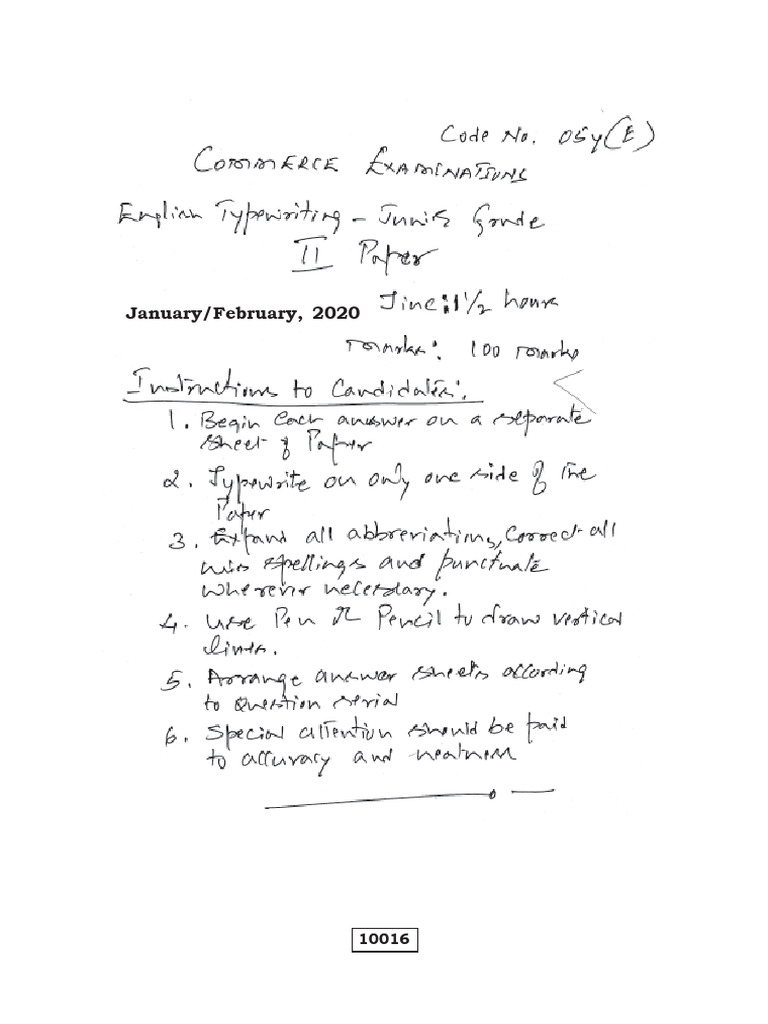 Code No. 05y(E)
COMMERCE EXAMINATIONS
English Typewriting - Junior Grade
II Paper
Time: 1 1/2 hours
January/February, 2020
Marks: 100 marks
Instructions to Candidates:
1. Begin each answer on a separate
sheet of Paper
2. Typewrite on only one side of the
Paper
3. Expand all abbreviations, Correct all
mis spellings and punctuate
wherever necessary.
4. Use Pen or Pencil to draw vertical
lines.
5. Arrange answer sheets according
to question serial
6. Special attention should be paid
to accuracy and neatness
10016